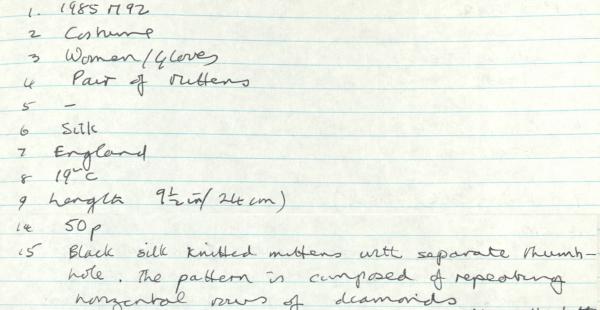 1. 1985 M92
2 Costume
3 Women/Gloves
4 Pair of mittens
5 –
6 Silk
7 England
8 19th C
9 Length 9½ in (24 cm)
14 50p
15 Black silk knitted mittens with separate thumb-
hole. The pattern is composed of repeating
horizontal rows of diamonds